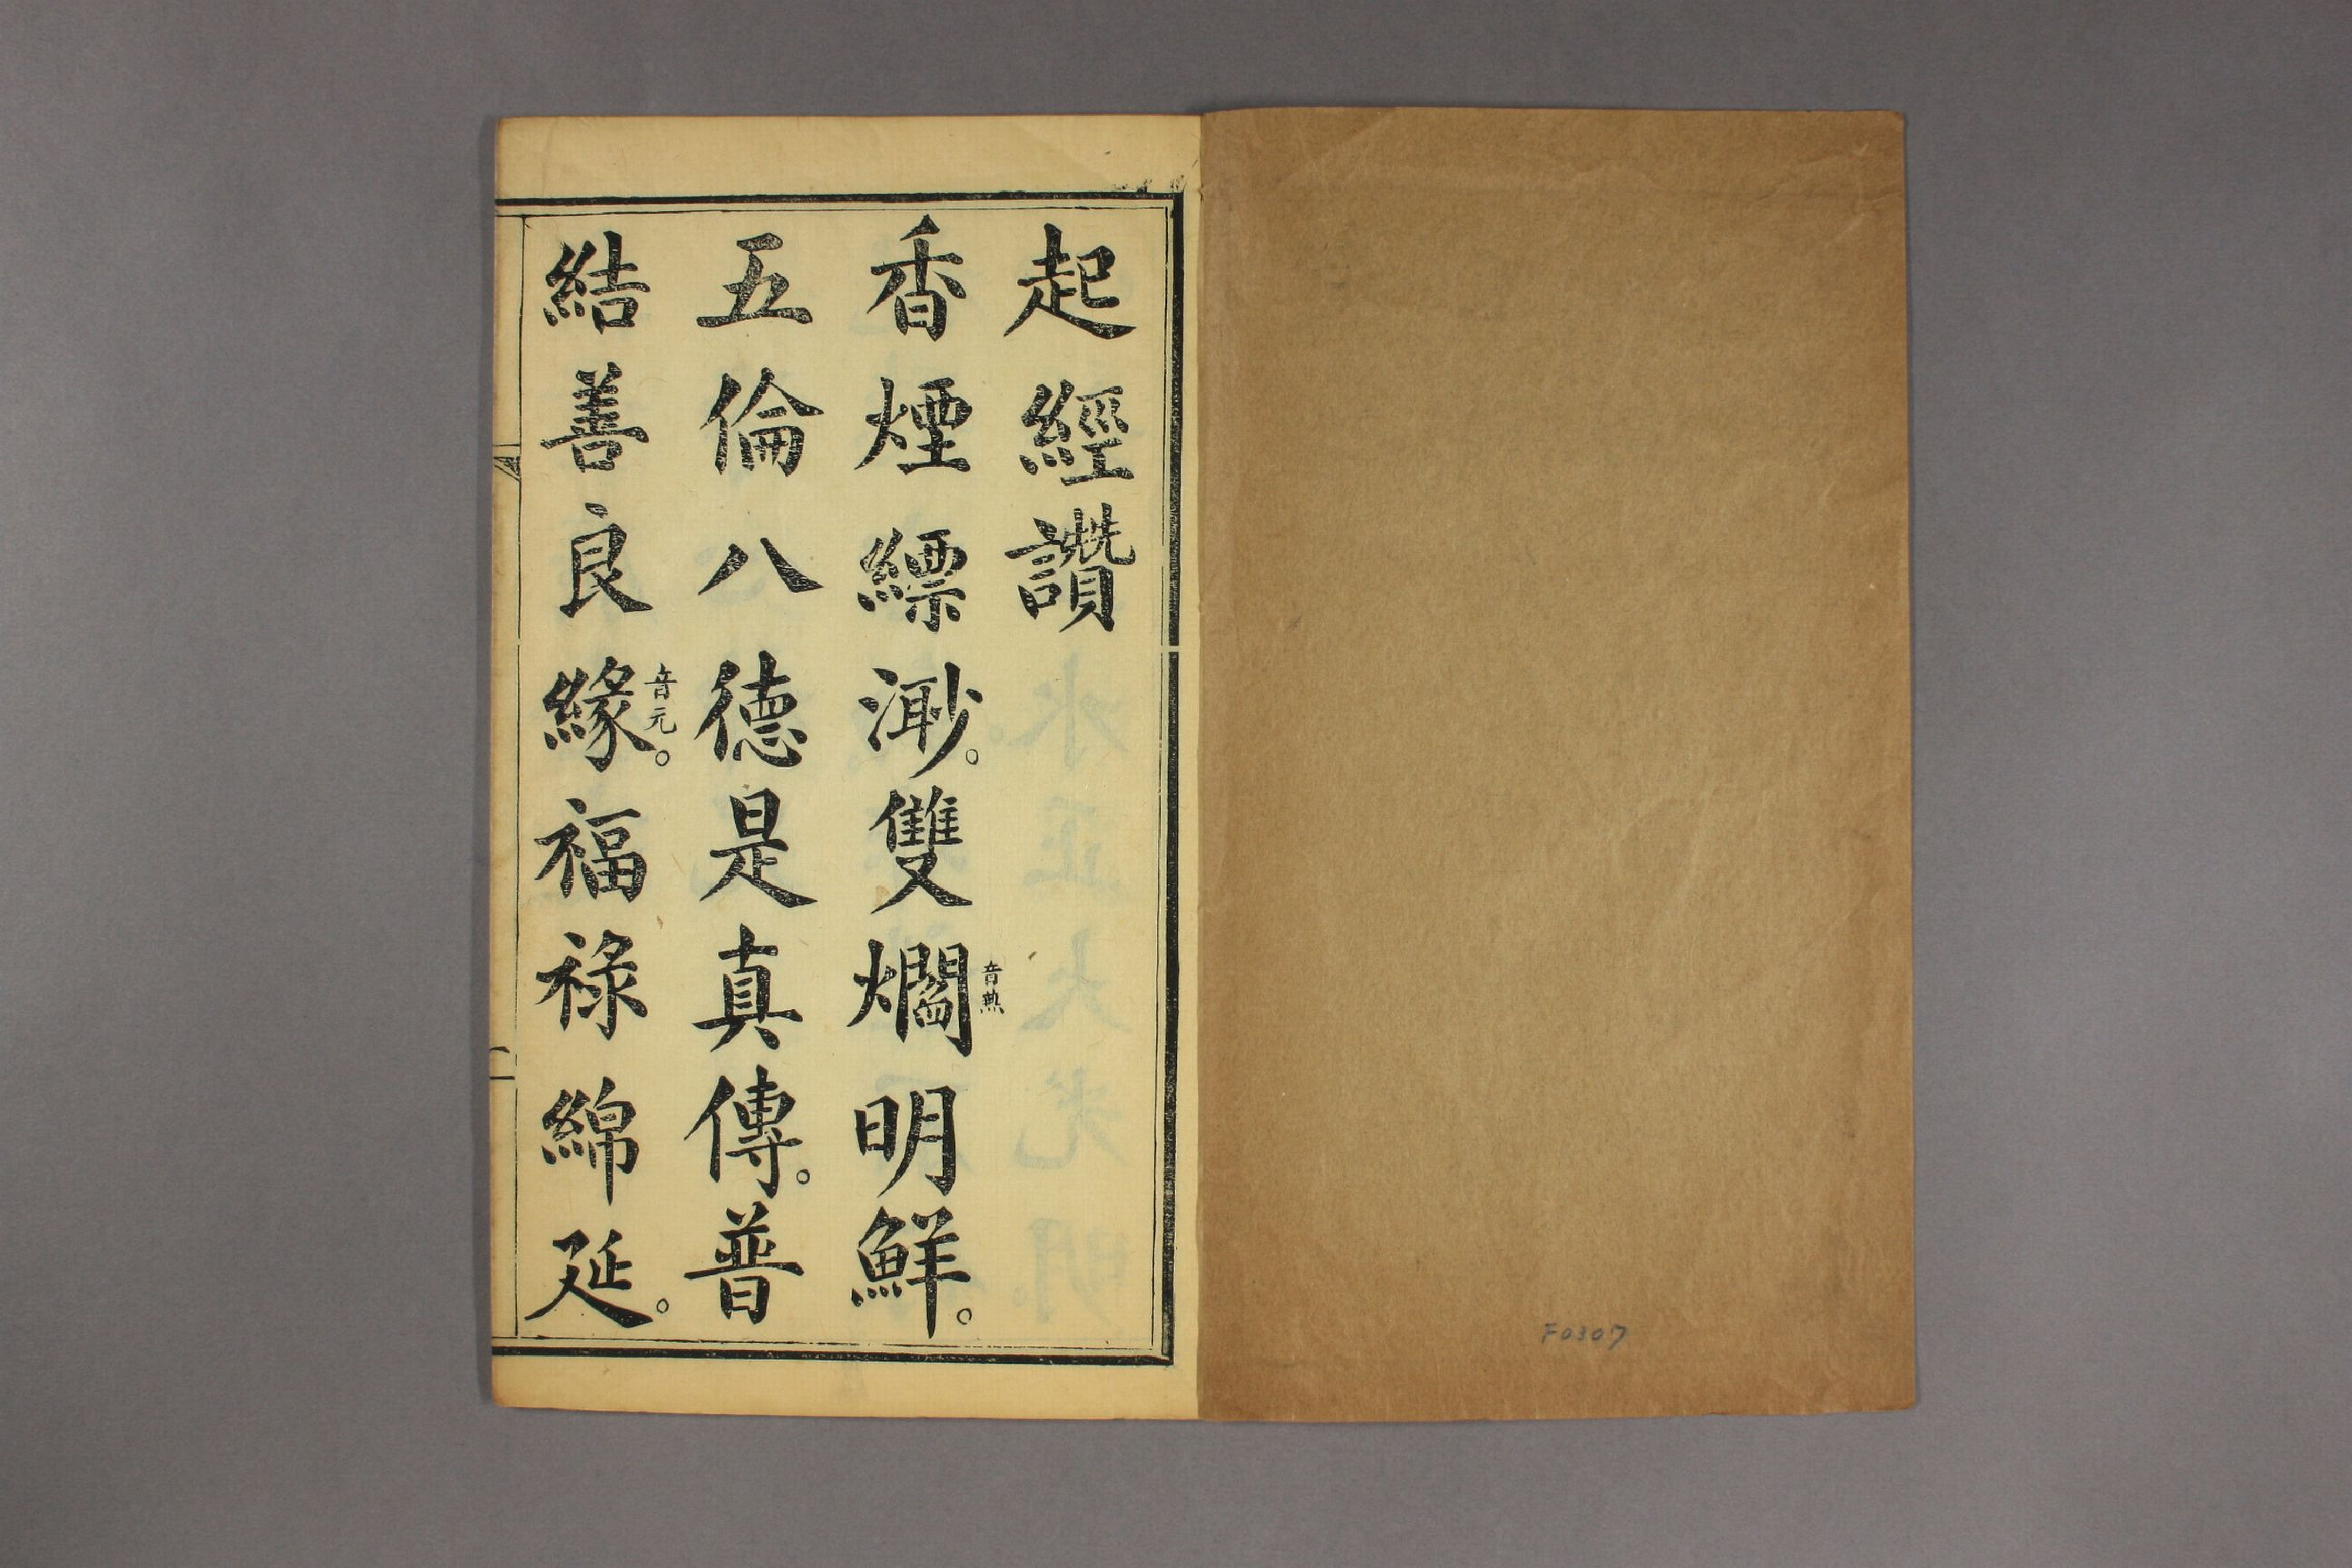 起經讚
香煙縹渺。雙爓音㷔明鮮。
五倫八德是真傳。普
結善良緣音元。福祿綿延。
F0307